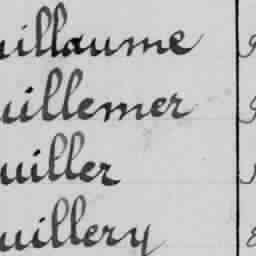 uillaume
uillemer
uiller
uillery